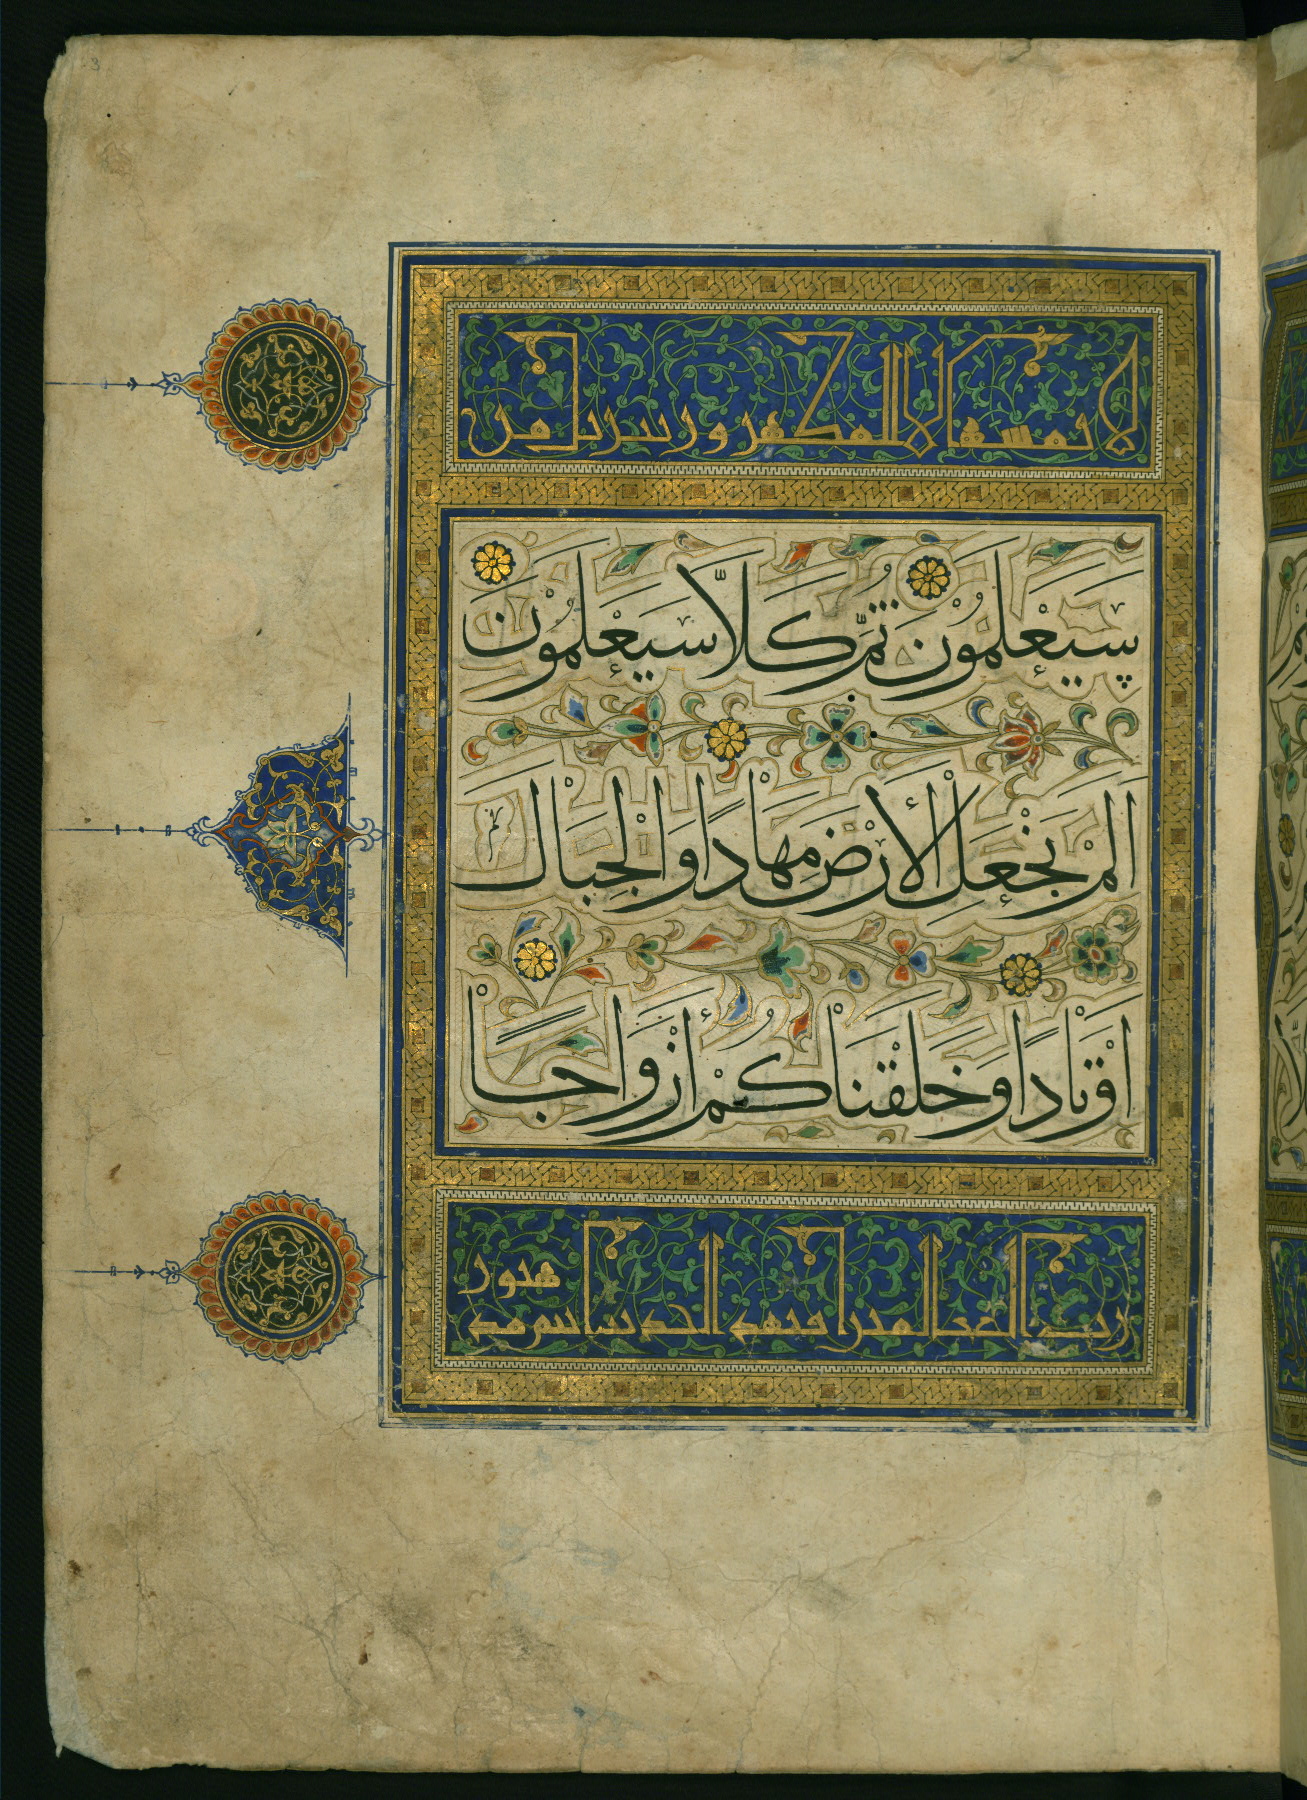 لا يمسه الا المطهرون تنزيل من
سَيَعْلَمُوْنَ ثُمَّ كَلَّا سَيَعْلَمُوْنَ
اَلَمْ نَجْعَلِ الْأَرْضَ مِهَادًا وَالْجِبَالَ
اَوْتَادًا وَخَلَقْنَاكُمْ أَزْوَاجًا
رب العالمين افبهذا الحديث انتم مدهنون